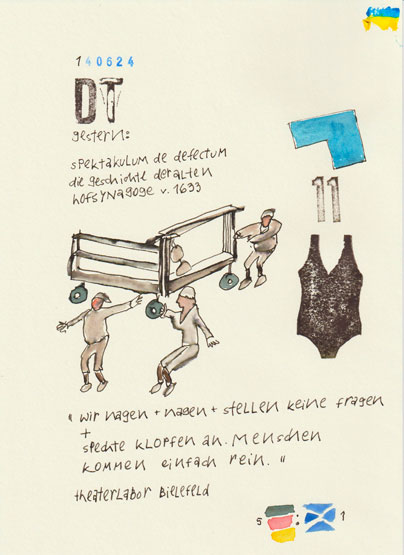 140624
DT
gestern:
spektakulum de defectum
die geschichte der alten
hofsynagoge v. 1633
11
„ wir nagen + nagen + stellen keine fragen
+
spechte klopfen an. Menschen
kommen einfach rein. "
theaterlabor Bielefeld
5 : 1